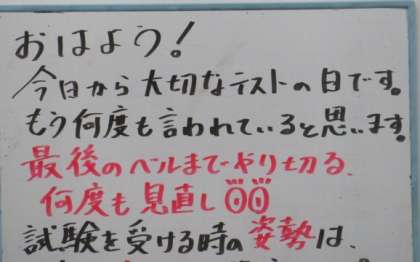 おはよう!
今日から大切なテストの日です。
もう何度も言われていると思います。
最後のベルまでやり切る、
何度も見直し
試験を受ける時の姿勢は、